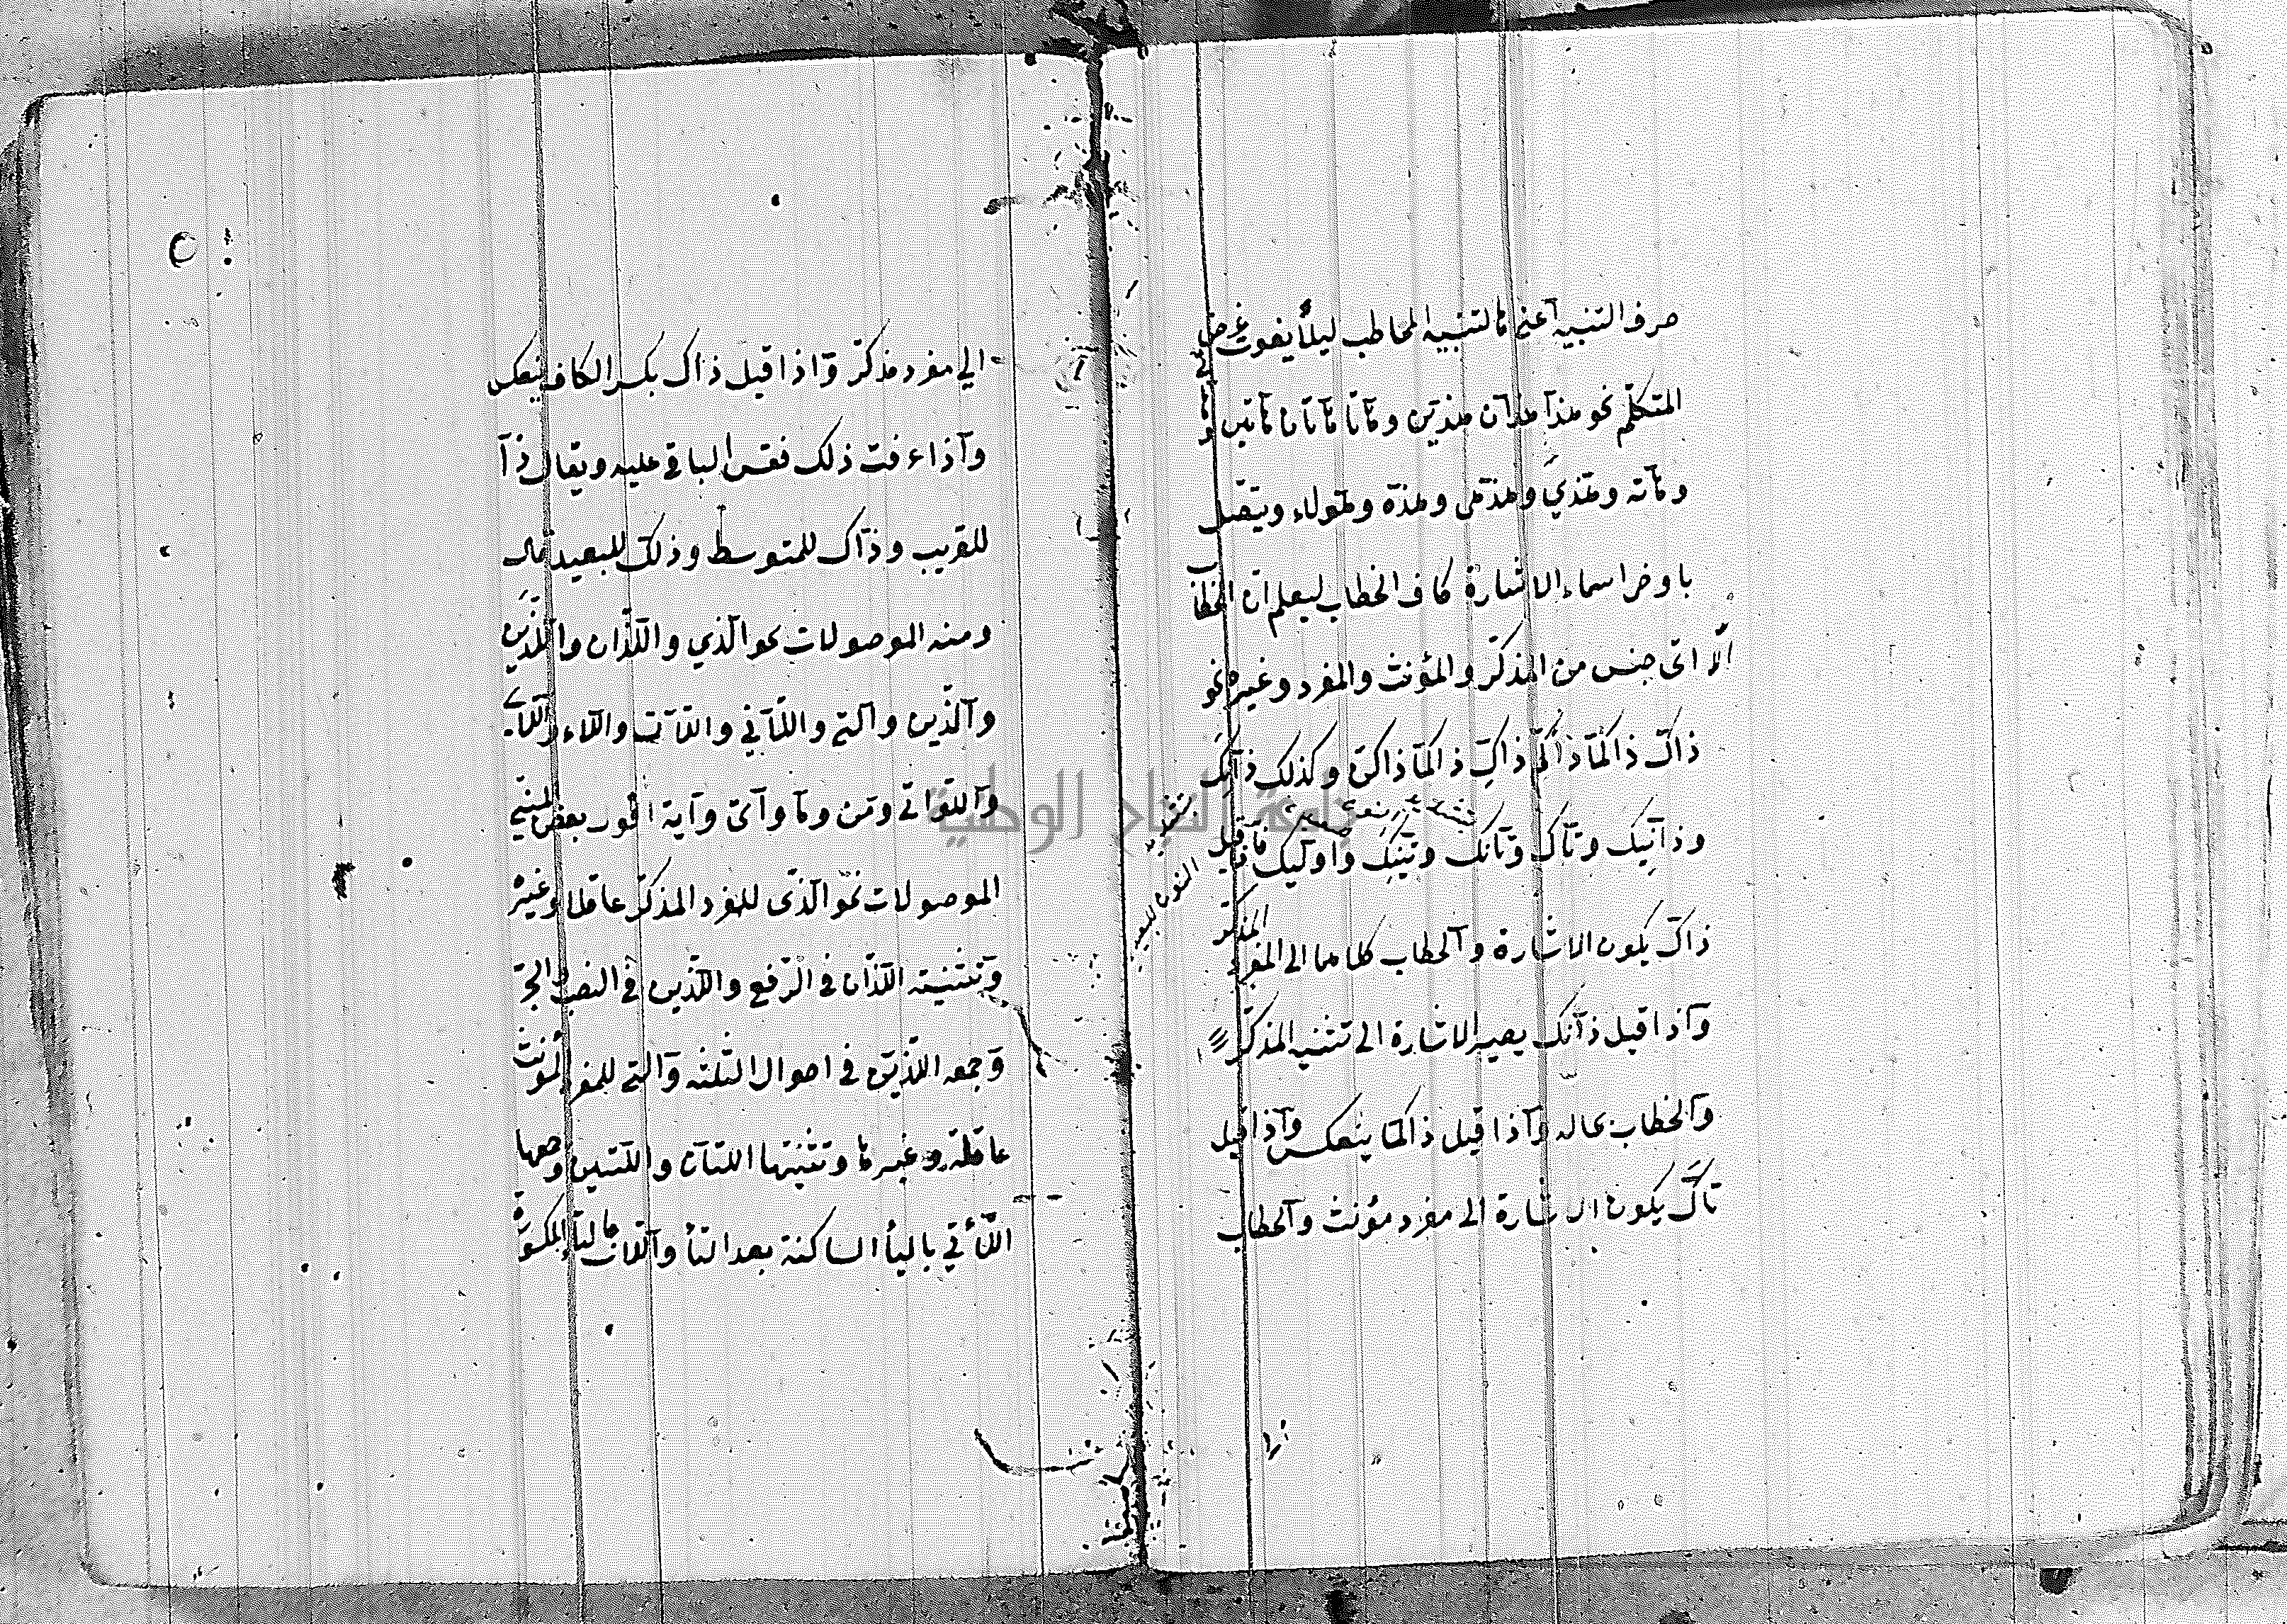 حرف التنبيه اعني ها لتنبيه المخاطب ليلا يفوت غرض
المتكلم نحو هذا هذان هذين وهاتا هاتان هاتين و
وهاته وهذي وهذهي وهذه وهولاء ويتصل
باوخر اسماء الاشارة كاف الخطاب ليعلم ان الخطاب
الى اى جنس من المذكر والمؤنث والمفرد وغيره نحو
ذاك ذاكما ذاكم ذاكِ ذاكما ذاكن وكذلك ذانك
وذانيك وتاك وتانك وتينك واوليك فاذا قيل
بتشديد النون للبعيد
ذاك يكون الاشارة والخطاب كلاهما الى المفرد المذكر
واذا قيل ذانك يصير الاشارة الى تثنيه المذكر
والخطاب بحاله واذا قيل ذاكما ينعكس واذا قيل
تاك يكون الاشارة الى مفرد مؤنث والخطاب
الي مفرد مذكر واذا قيل ذاك بكسر الكاف ينعكس
واذا عرفت ذلك فقس الباقي عليه ويقال ذا
للقريب وذاك للمتوسط وذلك للبعيد قال
ومنه الموصولات نحو الذي واللذان واللذين
والذين والتي واللآتي واللات واللاء واللآي
واللواتي ومن وما واي واية اقول بعض المبني
الموصولات نحو الذى للمفرد المذكر عاقلا وغيره
وتثنيته اللذان في الرفع واللذين في النصب والجر
وجمعه الذين في احوال الثلثه والتي للمفرد المؤنث
عاقلة وغيرها وتثنيتها اللتان واللتين وجمعها
اللآتي باليأ الساكنة بعد التأ واللات بالتأ المكسورة
جامعة النجاح الوطنية